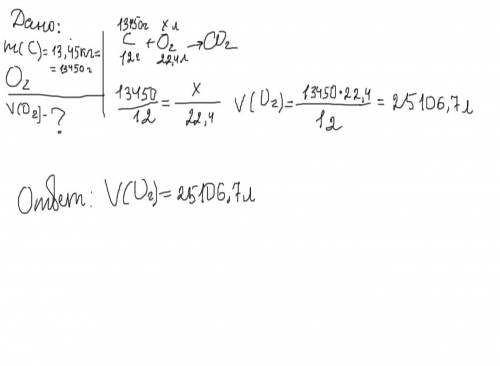 Дано:
m(C)=13,45кг=
=13450г
O₂
V(O₂)-?
13450г x л
C + O₂ → CO₂
12г 22,4л
13450/12 = x/22,4 V(O₂)= 13450•22,4/12 = 25106,7л
Ответ: V(O₂)=25106,7л